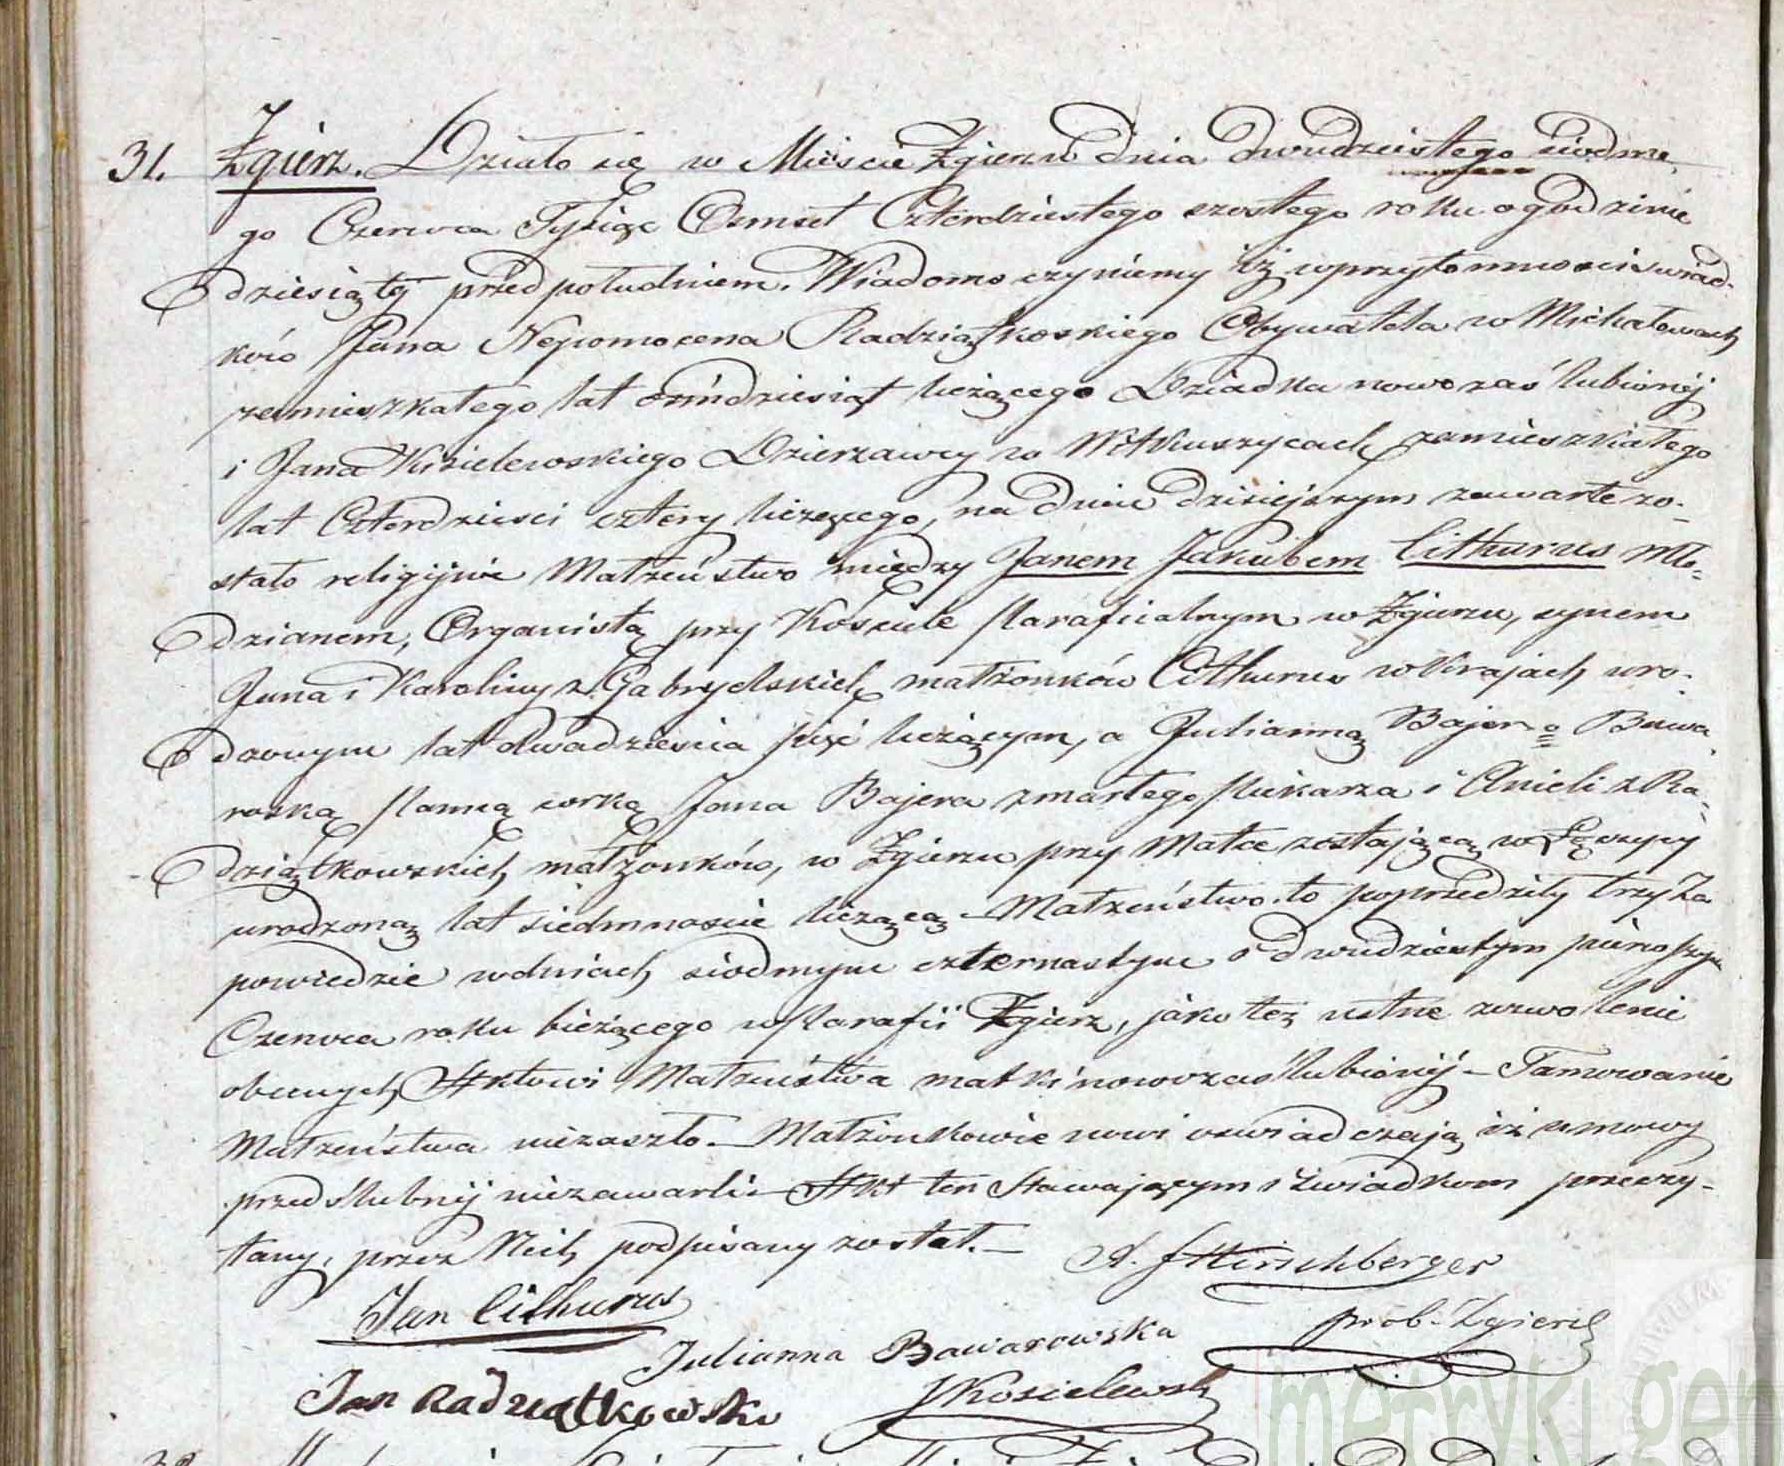 31. Zgierz. Działo się w Mieście Zgierzu dnia dwudziestego siódme
go Czerwca Tysiąc Ośmset Czterdziestego szóstego roku o godzinie
dziesiątej przed południem. Wiadomo czyniemy iż w przytomności świad-
ków Jana Nepomocena Radziątkoskiego Obywatela w Michałowach
zamieszkałego lat ośmdziesiąt liczącego Dziadka nowo zaślubionéj
i Jana Kisielewskiego Dzierzawcy w Witkuszycach zamieszkałego
lat Czterdzieści cztery liczącego, na dniu dzisiejszym zawarte zo-
stało religijnie Małżeństwo między Janem Jakubem Cithurus Mło-
dzianem, Organistą przy Kościele Parafialnym w Zgierzu, synem
Jana i Karoliny z Gabryelskich małżonków Cithurus w Krajach uro-
dzonym lat dwadzieścia pięć liczącym, a Julianną Bajer = Bawa
roską Panną córką Jana Bajera zmarłego Piekarza i Anieli z Ra-
dziątkowskich małżonków, w Zgierzu przy Matce zostającą w Łęczycy
urodzoną lat siedmnaście liczącą - Małżeństwo to poprzedziły trzy Za
powiedzie w dniach siódmym czternastym i dwudziestym pierwszym
Czerwca roku bieżącego w Parafii Zgierz, jako też ustne zezwolenie
obecnych Aktowi Małżeństwa matki nowozaślubionéj - Tamowanie
Małżeństwa niezaszło. - Małżonkowie nowi oświadczają iż umowy
przedślubnéj niezawarli - Akt ten Stawającym i Świadkom przeczy-
tany, przez Nich podpisany został. - A. Hirschberger
Jan Cithurus prob. Zgierz
Julianna Bawarowska
Jan Radziątkowski JKosielewski
metryki.gen